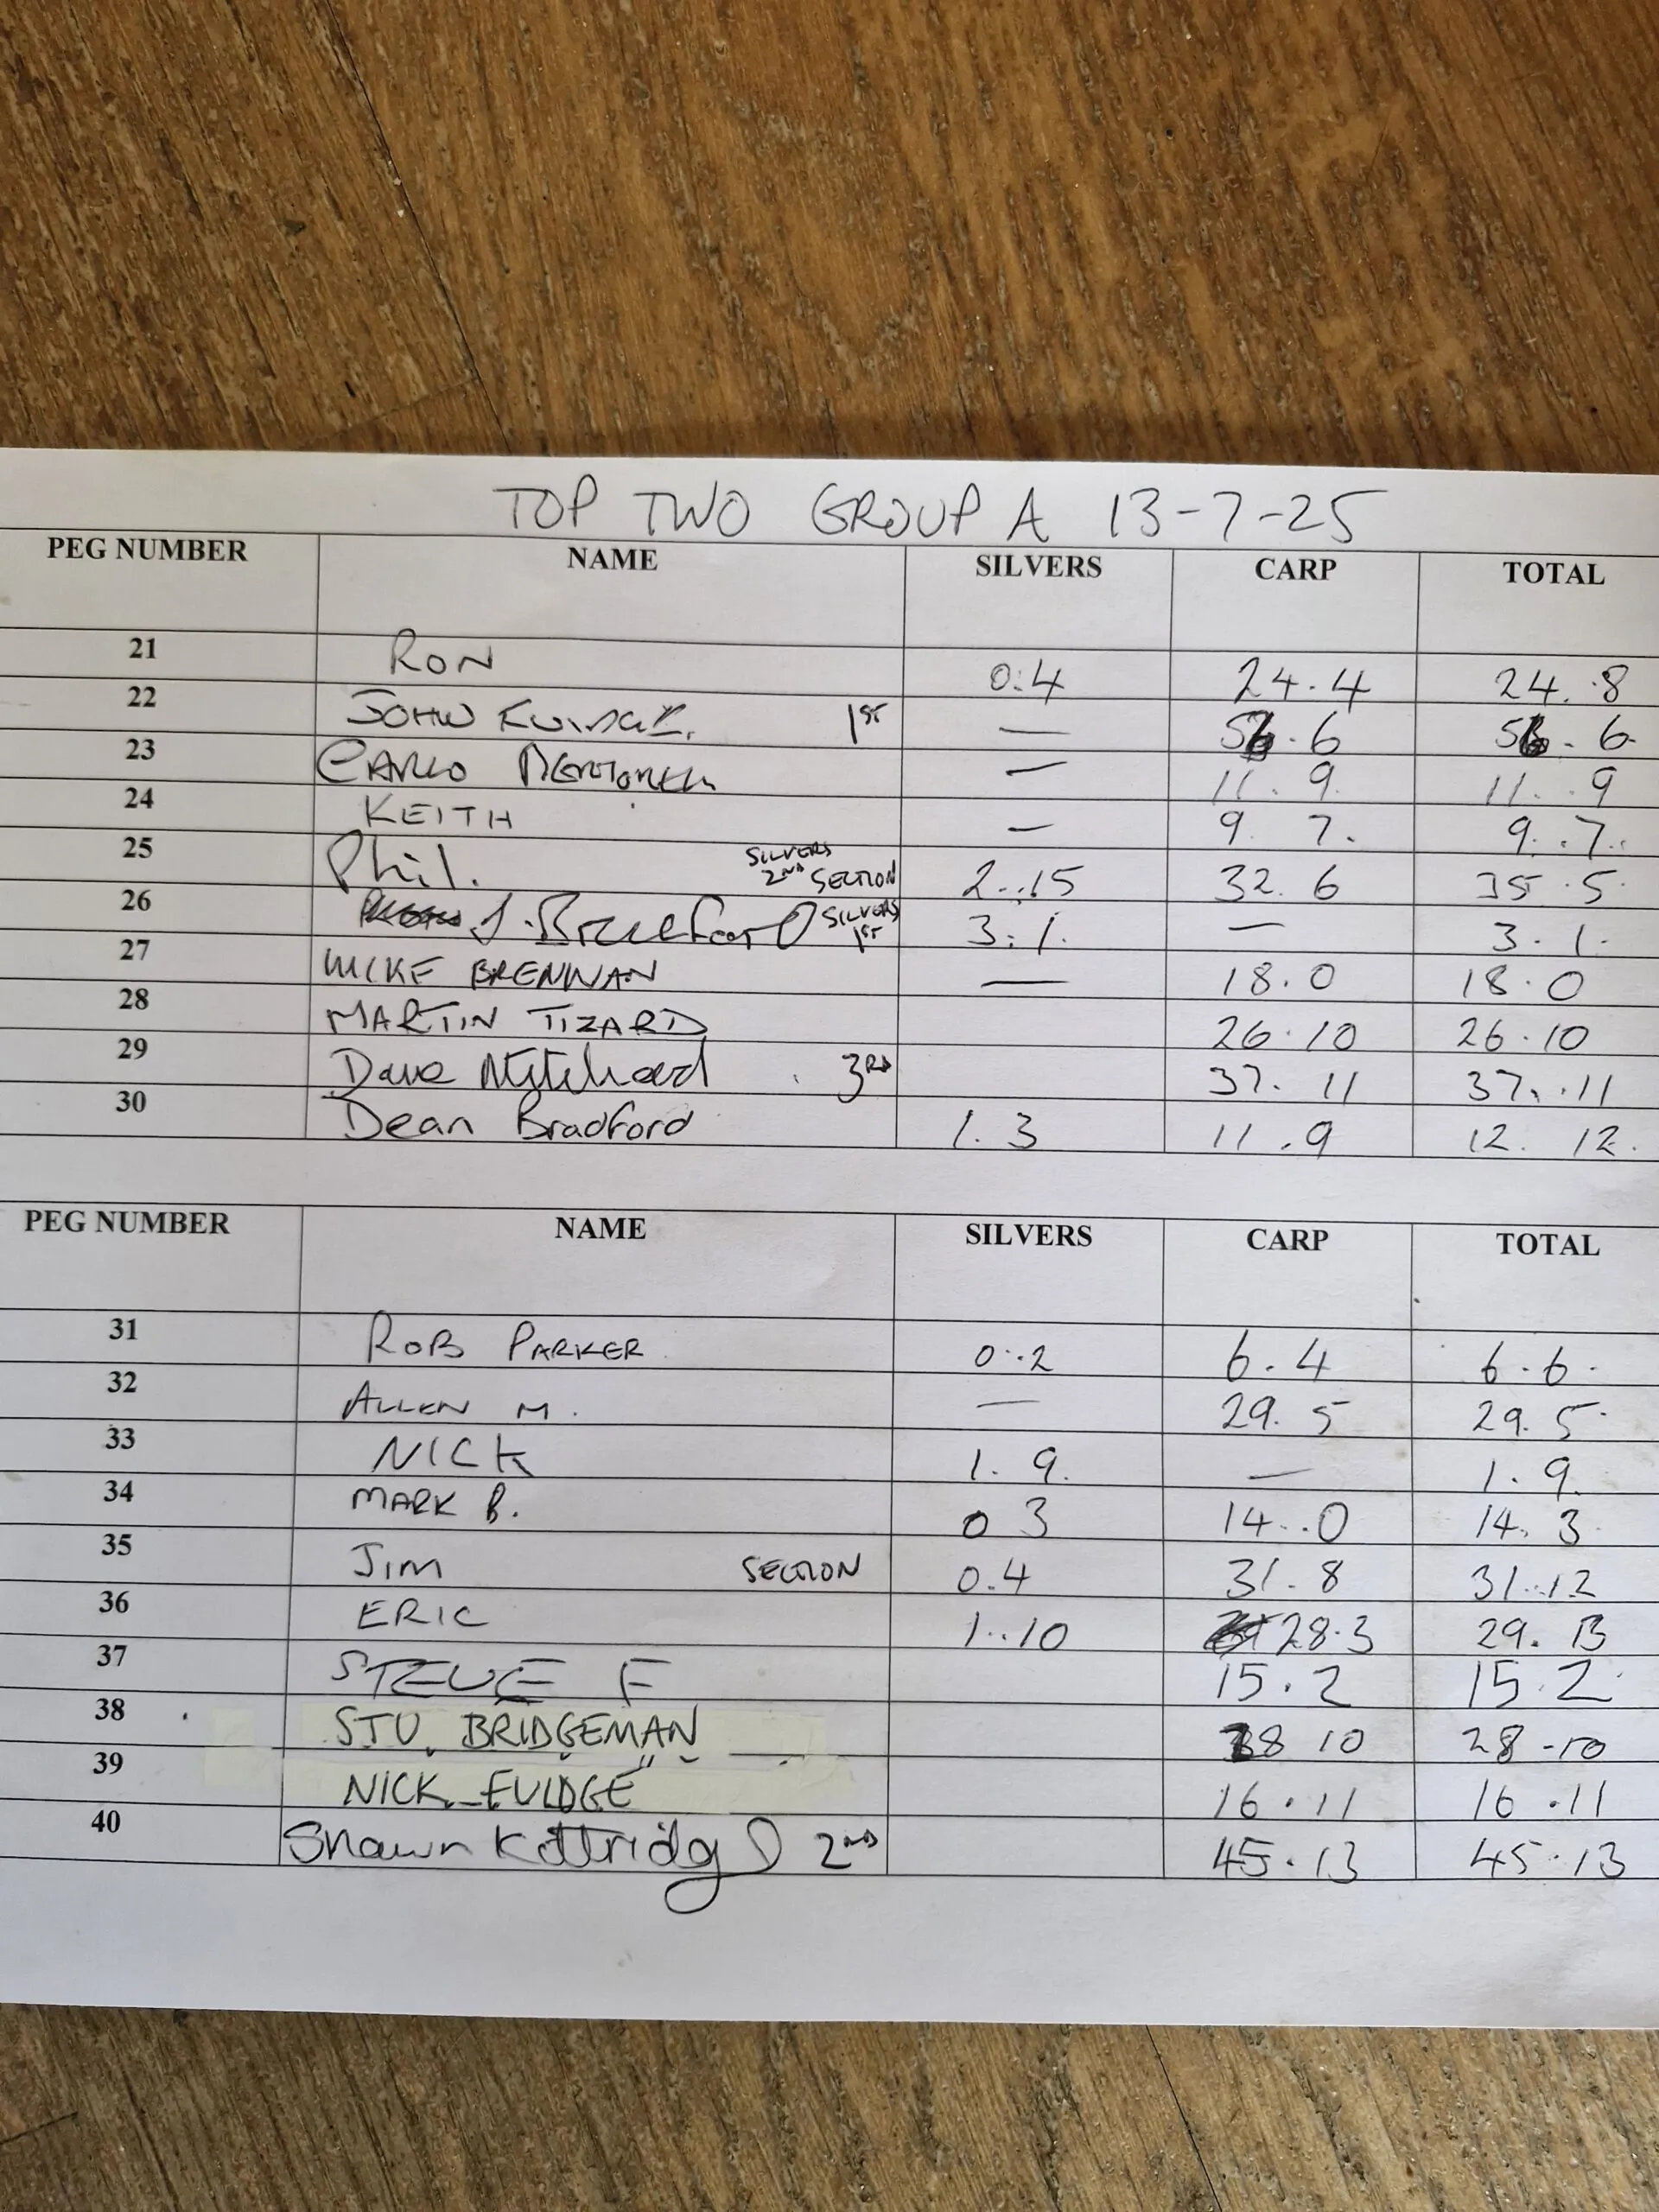 TOP TWO GROUP A 13-7-25
PEG NUMBER NAME SILVERS CARP TOTAL
21 RON 0.4 24.4 24.8
22 JOHN 1ST — 6 6
23 CARLO — 11.9 11.9
24 KEITH — 9 7. 9.7.
25 Phil. SILVERS 2ND SECTION 2.15 32.6 35.5
26 J. SILVERS 1ST 3.1. — 3.1.
27 MIKE BRENNAN — 18.0 18.0
28 MARTIN TIZARD 26.10 26.10
29 Dave 3RD 37.11 37.11
30 Dean Bradford 1.3 11.9 12.12.
PEG NUMBER NAME SILVERS CARP TOTAL
31 ROB PARKER 0.2 6.4 6.6.
32 ALLEN M. — 29.5 29.5
33 NICK 1.9. — 1.9.
34 MARK B. 0 3 14.0 14.3
35 JIM SECTION 0.4 31.8 31.12
36 ERIC 1.10 28.3 29.13
37 STEVE F 15.2 15.2
38 STU. BRIDGEMAN 28 10 28-10
39 NICK FULDGE 16.11 16.11
40 Shawn Kittridge 2ND 45.13 45.13